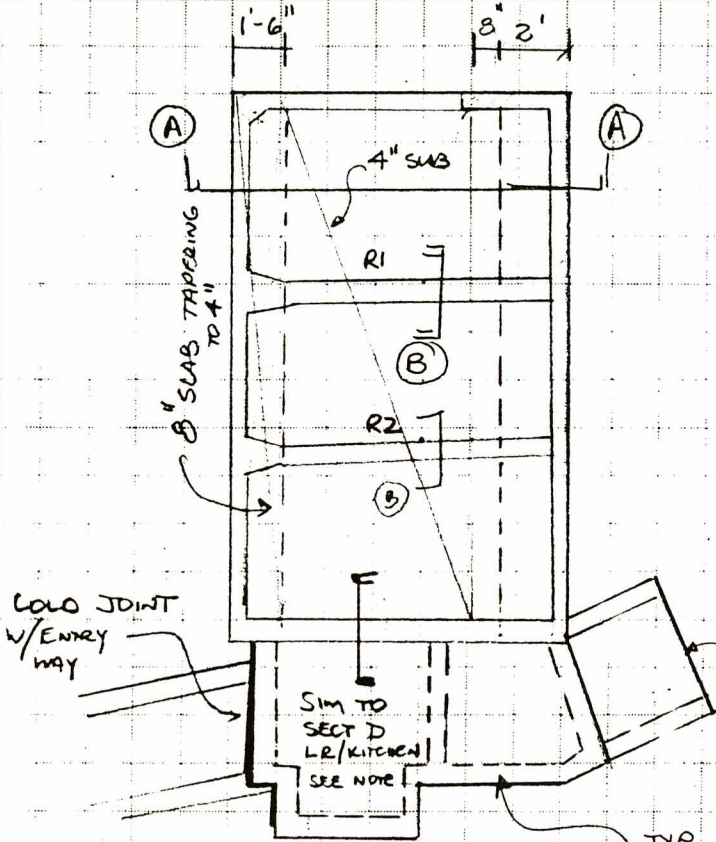 1'-6"
8" 2'
A
A
4" SLAB
8" SLAB TAPERING
TO 4"
R1
B
R2
B
COLD JOINT
W/ENTRY
WAY
SIM TO
SECT D
LR/KITCHEN
SEE NOTE
TYP